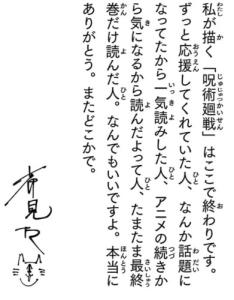 私が描く「呪術廻戦」はここで終わりです。
ずっと応援してくれていた人、なんか話題に
なってたから一気読みした人、アニメの続きか
ら気になるから読んだよって人、たまたま最終
巻だけ読んだ人。なんでもいいですよ。本当に
ありがとう。またどこかで。